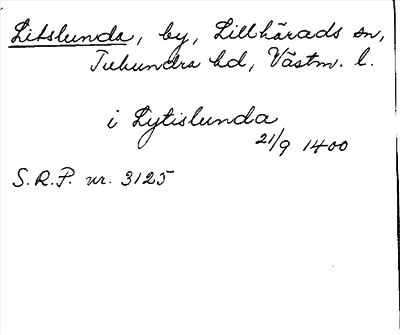 Litslunda, by, Lillhärads sn,
Tuhundra hd, Västm. l.
i Lytislunda
21/9 1400
S.R.P. nr. 3125